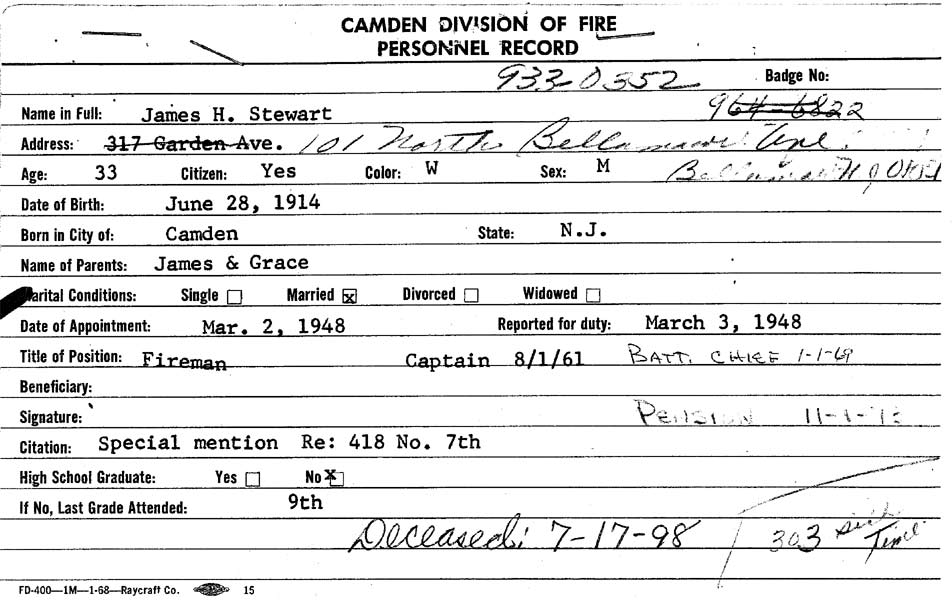 CAMDEN DIVISION OF FIRE
PERSONNEL RECORD
933-0352 Badge No:
Name in Full: James H. Stewart 964-6822
Address: 317 Garden Ave. 101 North Ave.
Age: 33 Citizen: Yes Color: W Sex: M
Date of Birth: June 28, 1914
Born in City of: Camden State: N.J.
Name of Parents: James & Grace
Marital Conditions: Single Married x Divorced Widowed
Date of Appointment: Mar. 2, 1948 Reported for duty: March 3, 1948
Title of Position: Fireman Captain 8/1/61 BATT. CHIEF 1-1-69
Beneficiary:
Signature: PENSION 11-1-
Citation: Special mention Re: 418 No. 7th
High School Graduate: Yes No X
If No, Last Grade Attended: 9th
Deceased: 7-17-98 303 Sick Time
FD-400—1M—1-68—Raycraft Co. 15